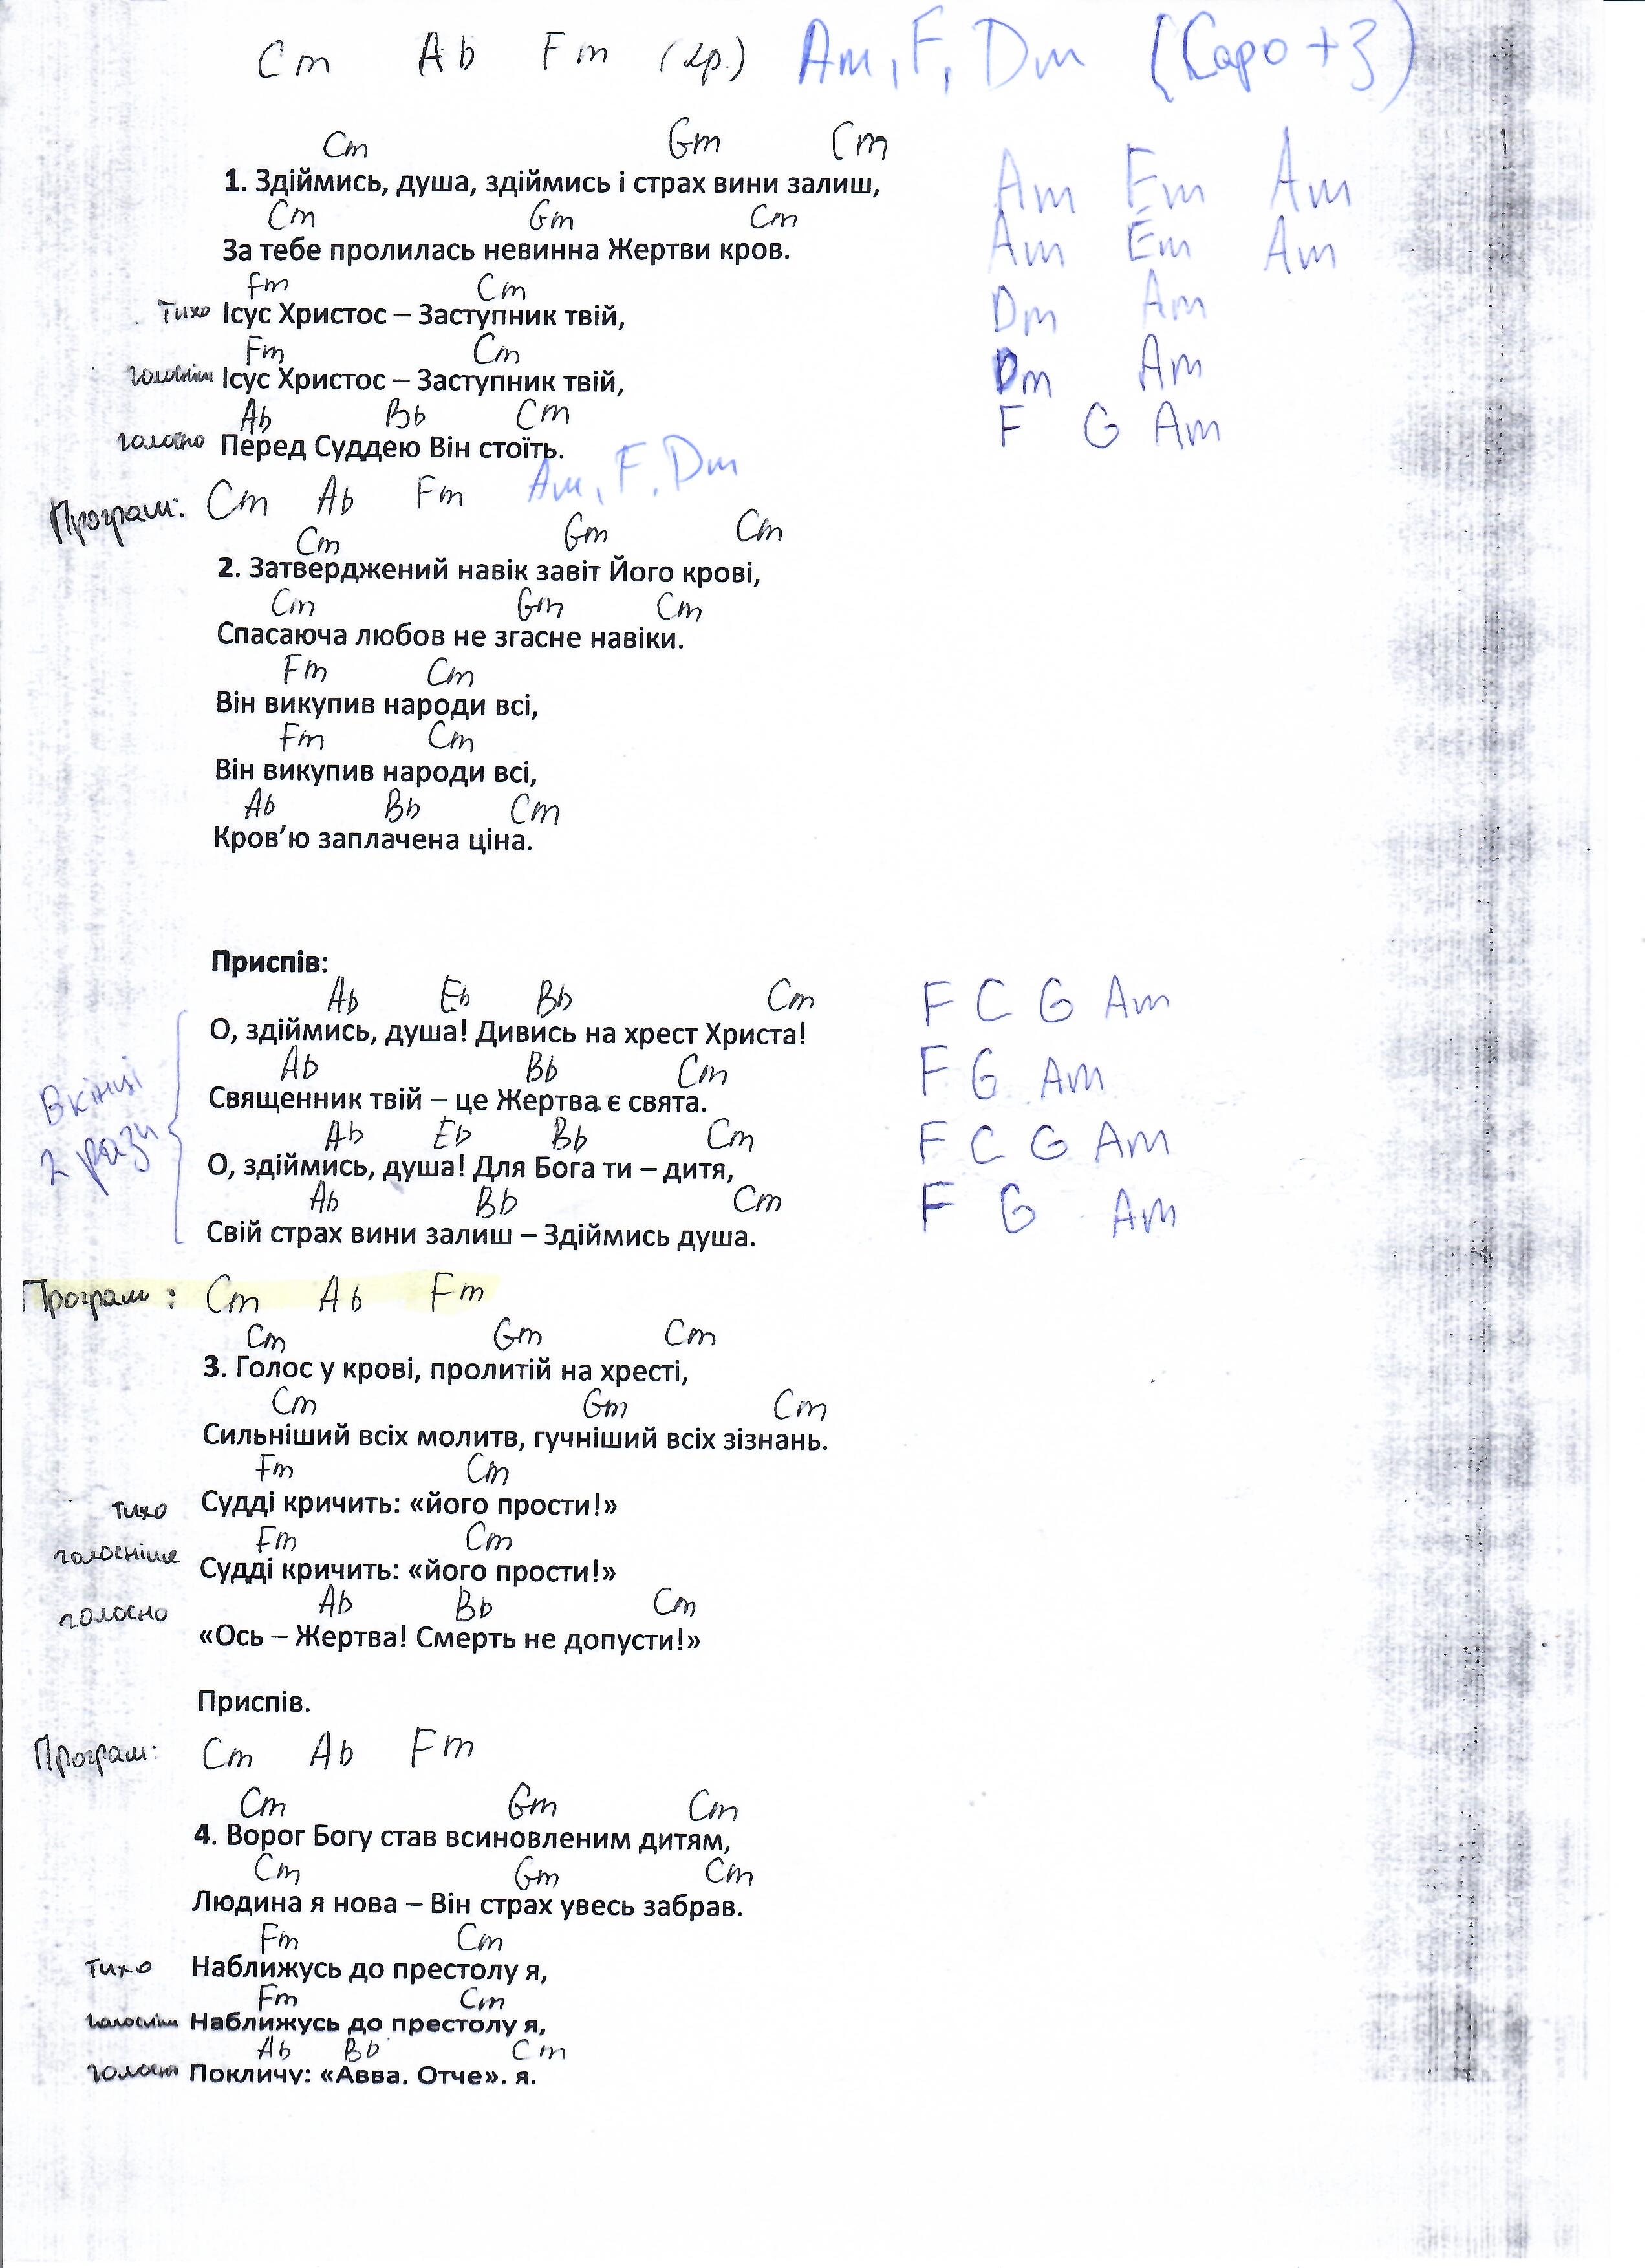 Cm Ab Fm (2р.) Am, F, Dm (Capo +3)
Cm Gm Cm
1. Здіймись, душа, здіймись і страх вини залиш, Am Em Am
Cm Gm Cm
За тебе пролилась невинна Жертви кров. Am Em Am
Fm Cm
тихо Ісус Христос – Заступник твій, Dm Am
Fm Cm
голосніш Ісус Христос – Заступник твій, Dm Am
Ab Bb Cm
голосно Перед Суддею Він стоїть. F G Am
Програш: Cm Ab Fm Am, F, Dm
Cm Gm Cm
2. Затверджений навік завіт Його крові,
Cm Gm Cm
Спасаюча любов не згасне навіки.
Fm Cm
Він викупив народи всі,
Fm Cm
Він викупив народи всі,
Ab Bb Cm
Кров’ю заплачена ціна.
Приспів:
Ab Eb Bb Cm F C G Am
О, здіймись, душа! Дивись на хрест Христа!
Ab Bb Cm F G Am
Священник твій – це Жертва є свята.
Вкінці 2 рази
Ab Eb Bb Cm F C G Am
О, здіймись, душа! Для Бога ти – дитя,
Ab Bb Cm F G Am
Свій страх вини залиш – Здіймись душа.
Програш: Cm Ab Fm
Cm Gm Cm
3. Голос у крові, пролитій на хресті,
Cm Gm Cm
Сильніший всіх молитв, гучніший всіх зізнань.
Fm Cm
тихо Судді кричить: «його прости!»
Fm Cm
голосніше Судді кричить: «його прости!»
Ab Bb Cm
голосно «Ось – Жертва! Смерть не допусти!»
Приспів.
Програш: Cm Ab Fm
Cm Gm Cm
4. Ворог Богу став всиновленим дитям,
Cm Gm Cm
Людина я нова – Він страх увесь забрав.
Fm Cm
тихо Наближусь до престолу я,
Fm Cm
голосніш Наближусь до престолу я,
Ab Bb Cm
голосно Покличу: «Авва. Отче». я.